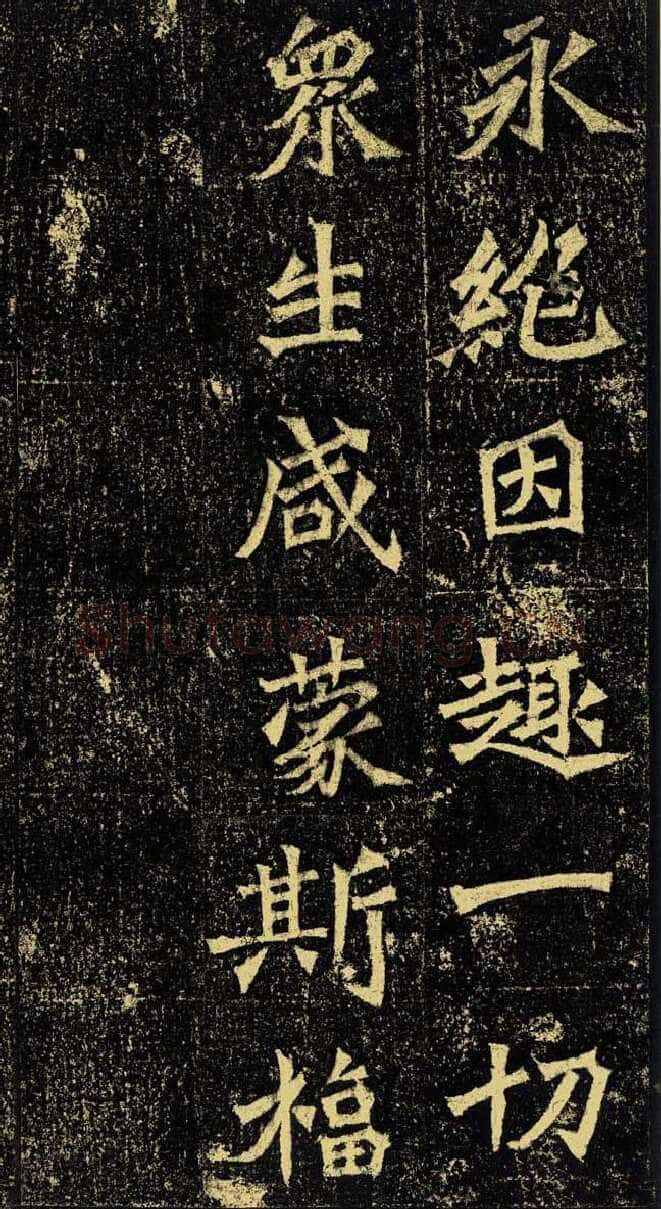 永絶因趣一切
眾生咸蒙斯福
Shufawang.cn